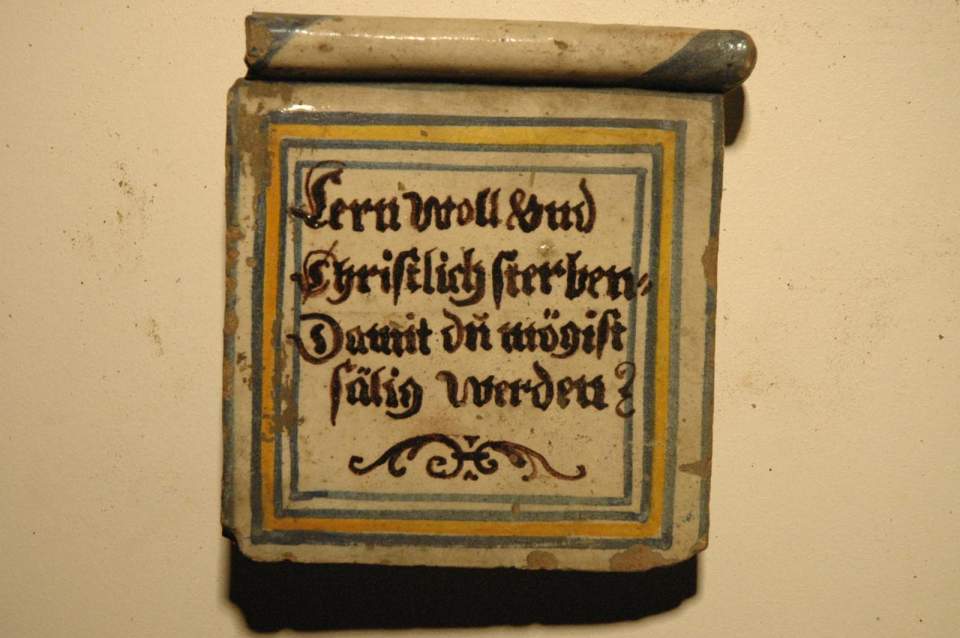 Lern woll Vnd
Christlich sterben-
Damit du̇ mögist
sälig werden